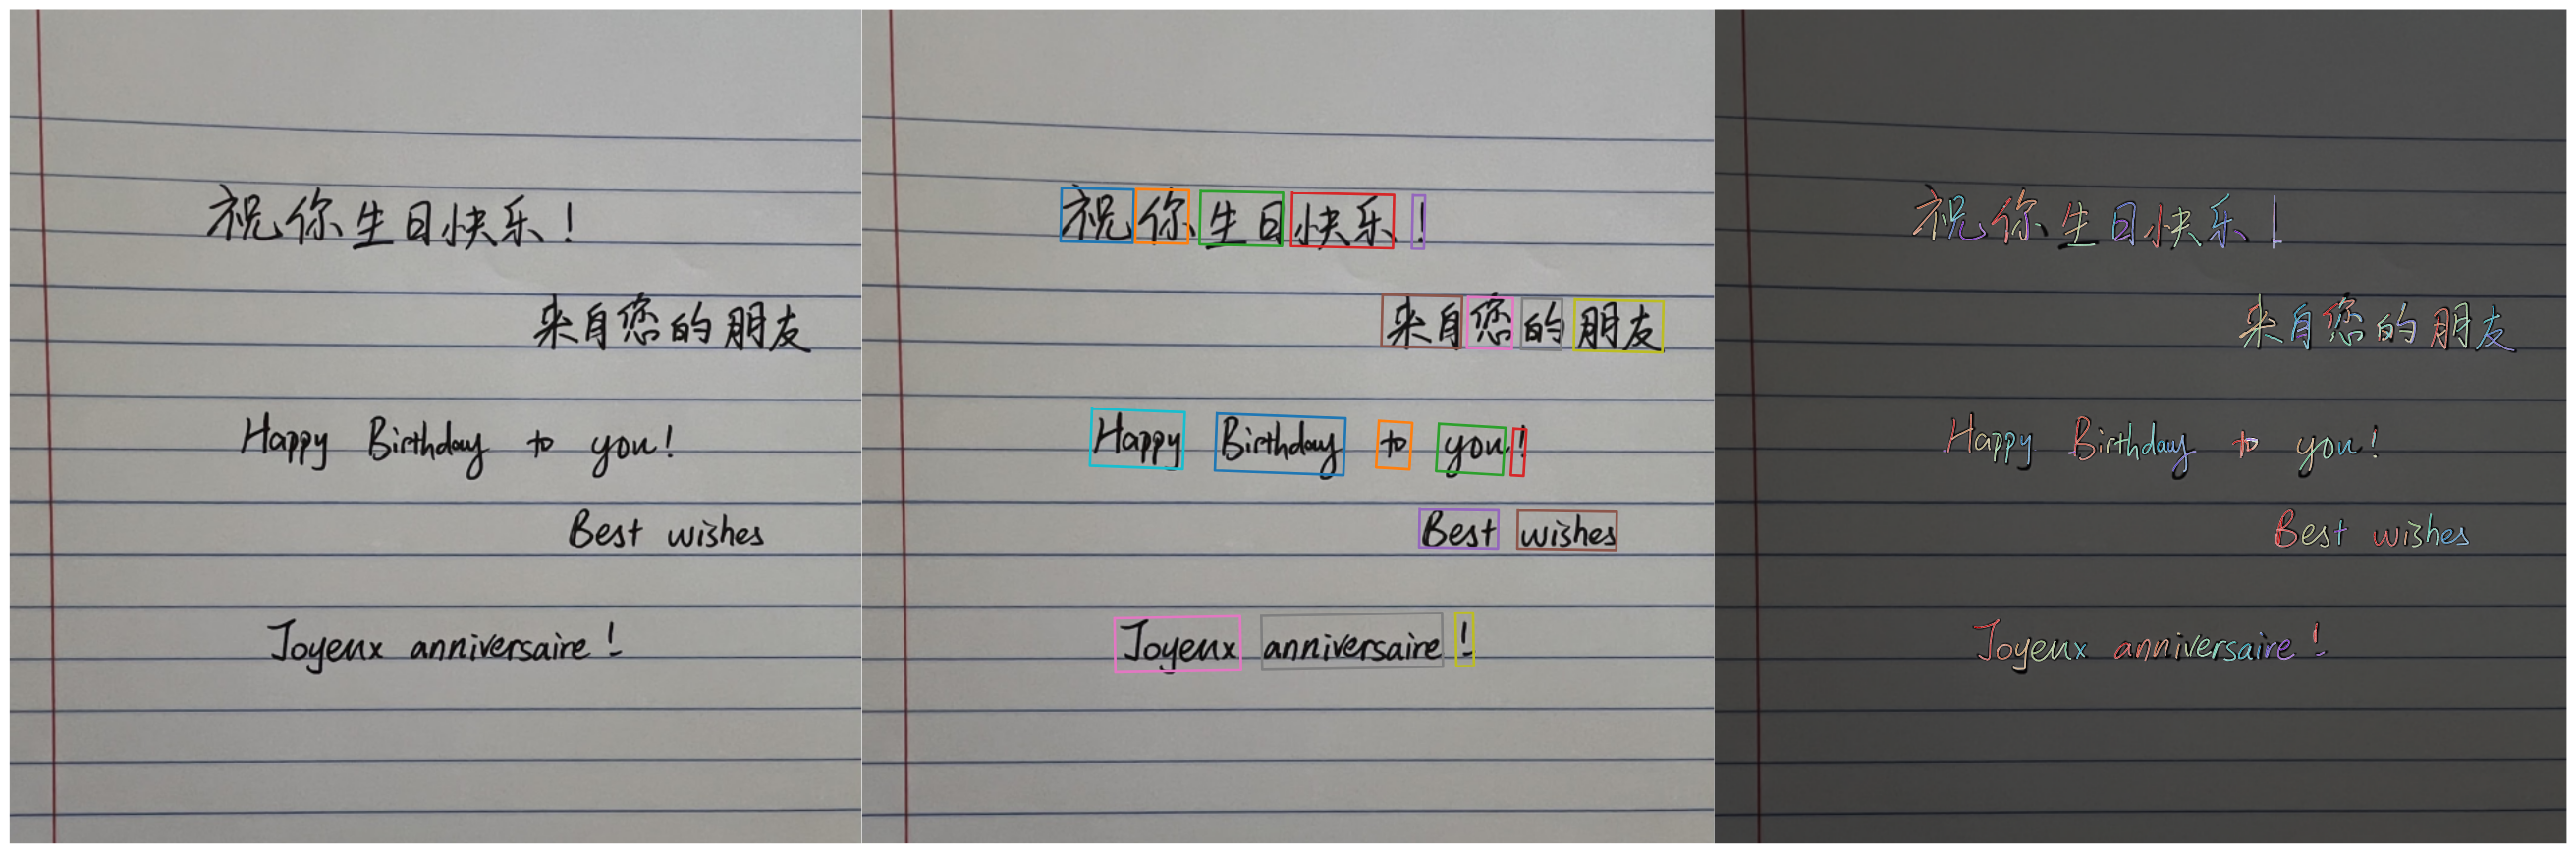 祝你生日快乐！
来自您的朋友
Happy Birthday to you!
Best wishes
Joyeux anniversaire !
祝你生日快乐！
来自您的朋友
Happy Birthday to you!
Best wishes
Joyeux anniversaire !
祝你生日快乐！
来自您的朋友
Happy Birthday to you!
Best wishes
Joyeux anniversaire !